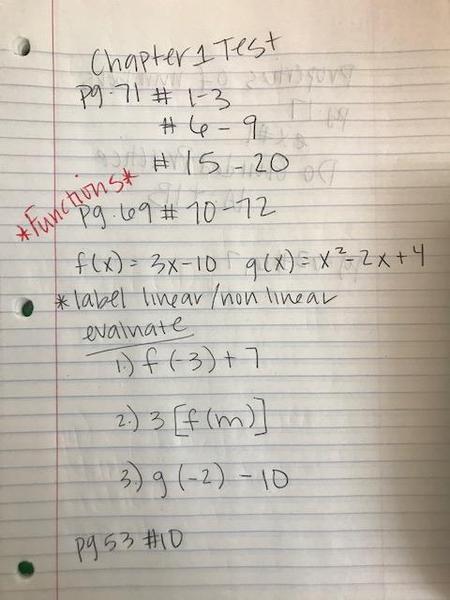 Chapter 1 Test
pg. 71 # 1-3
# 6-9
# 15-20
*Functions*
pg. 69 # 70-72
f(x) = 3x-10 g(x) = x²-2x+4
*label linear/non linear
evaluate
1.) f(-3)+7
2.) 3[f(m)]
3.) g(-2)-10
pg 53 #10